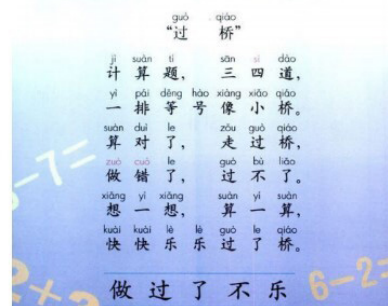 guò qiáo
“过 桥”
jì suàn tí sān sì dào
计算题， 三四道，
yì pái děng hào xiàng xiǎo qiáo
一排等号像小桥。
suàn duì le zǒu guò qiáo
算对了， 走过桥，
zuò cuò le guò bù liǎo
做错了， 过不了。
xiǎng yì xiǎng suàn yí suàn
想一想， 算一算，
kuài kuài lè lè guò le qiáo
快快乐乐过了桥。
做过了不乐
-7=
2+
6-2